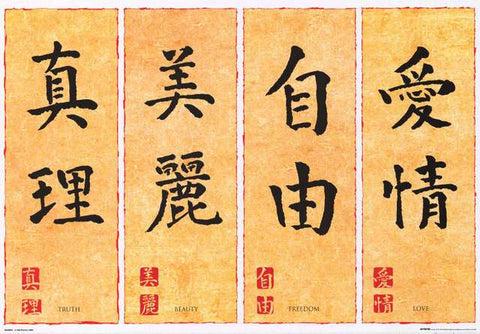 真
理
真
理
TRUTH
美
麗
美
麗
BEAUTY
自
由
自
由
FREEDOM
愛
情
愛
情
LOVE